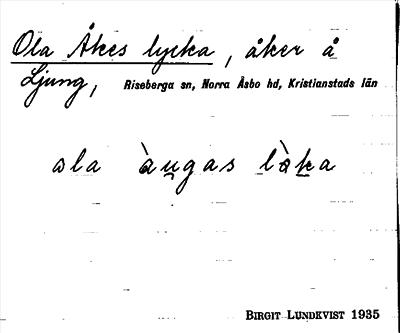 Ola Åkes lycka, åker å
Ljung, Riseberga sn, Norra Åsbo hd, Kristianstads län
ola àu̢gas làka
BIRGIT LUNDKVIST 1935